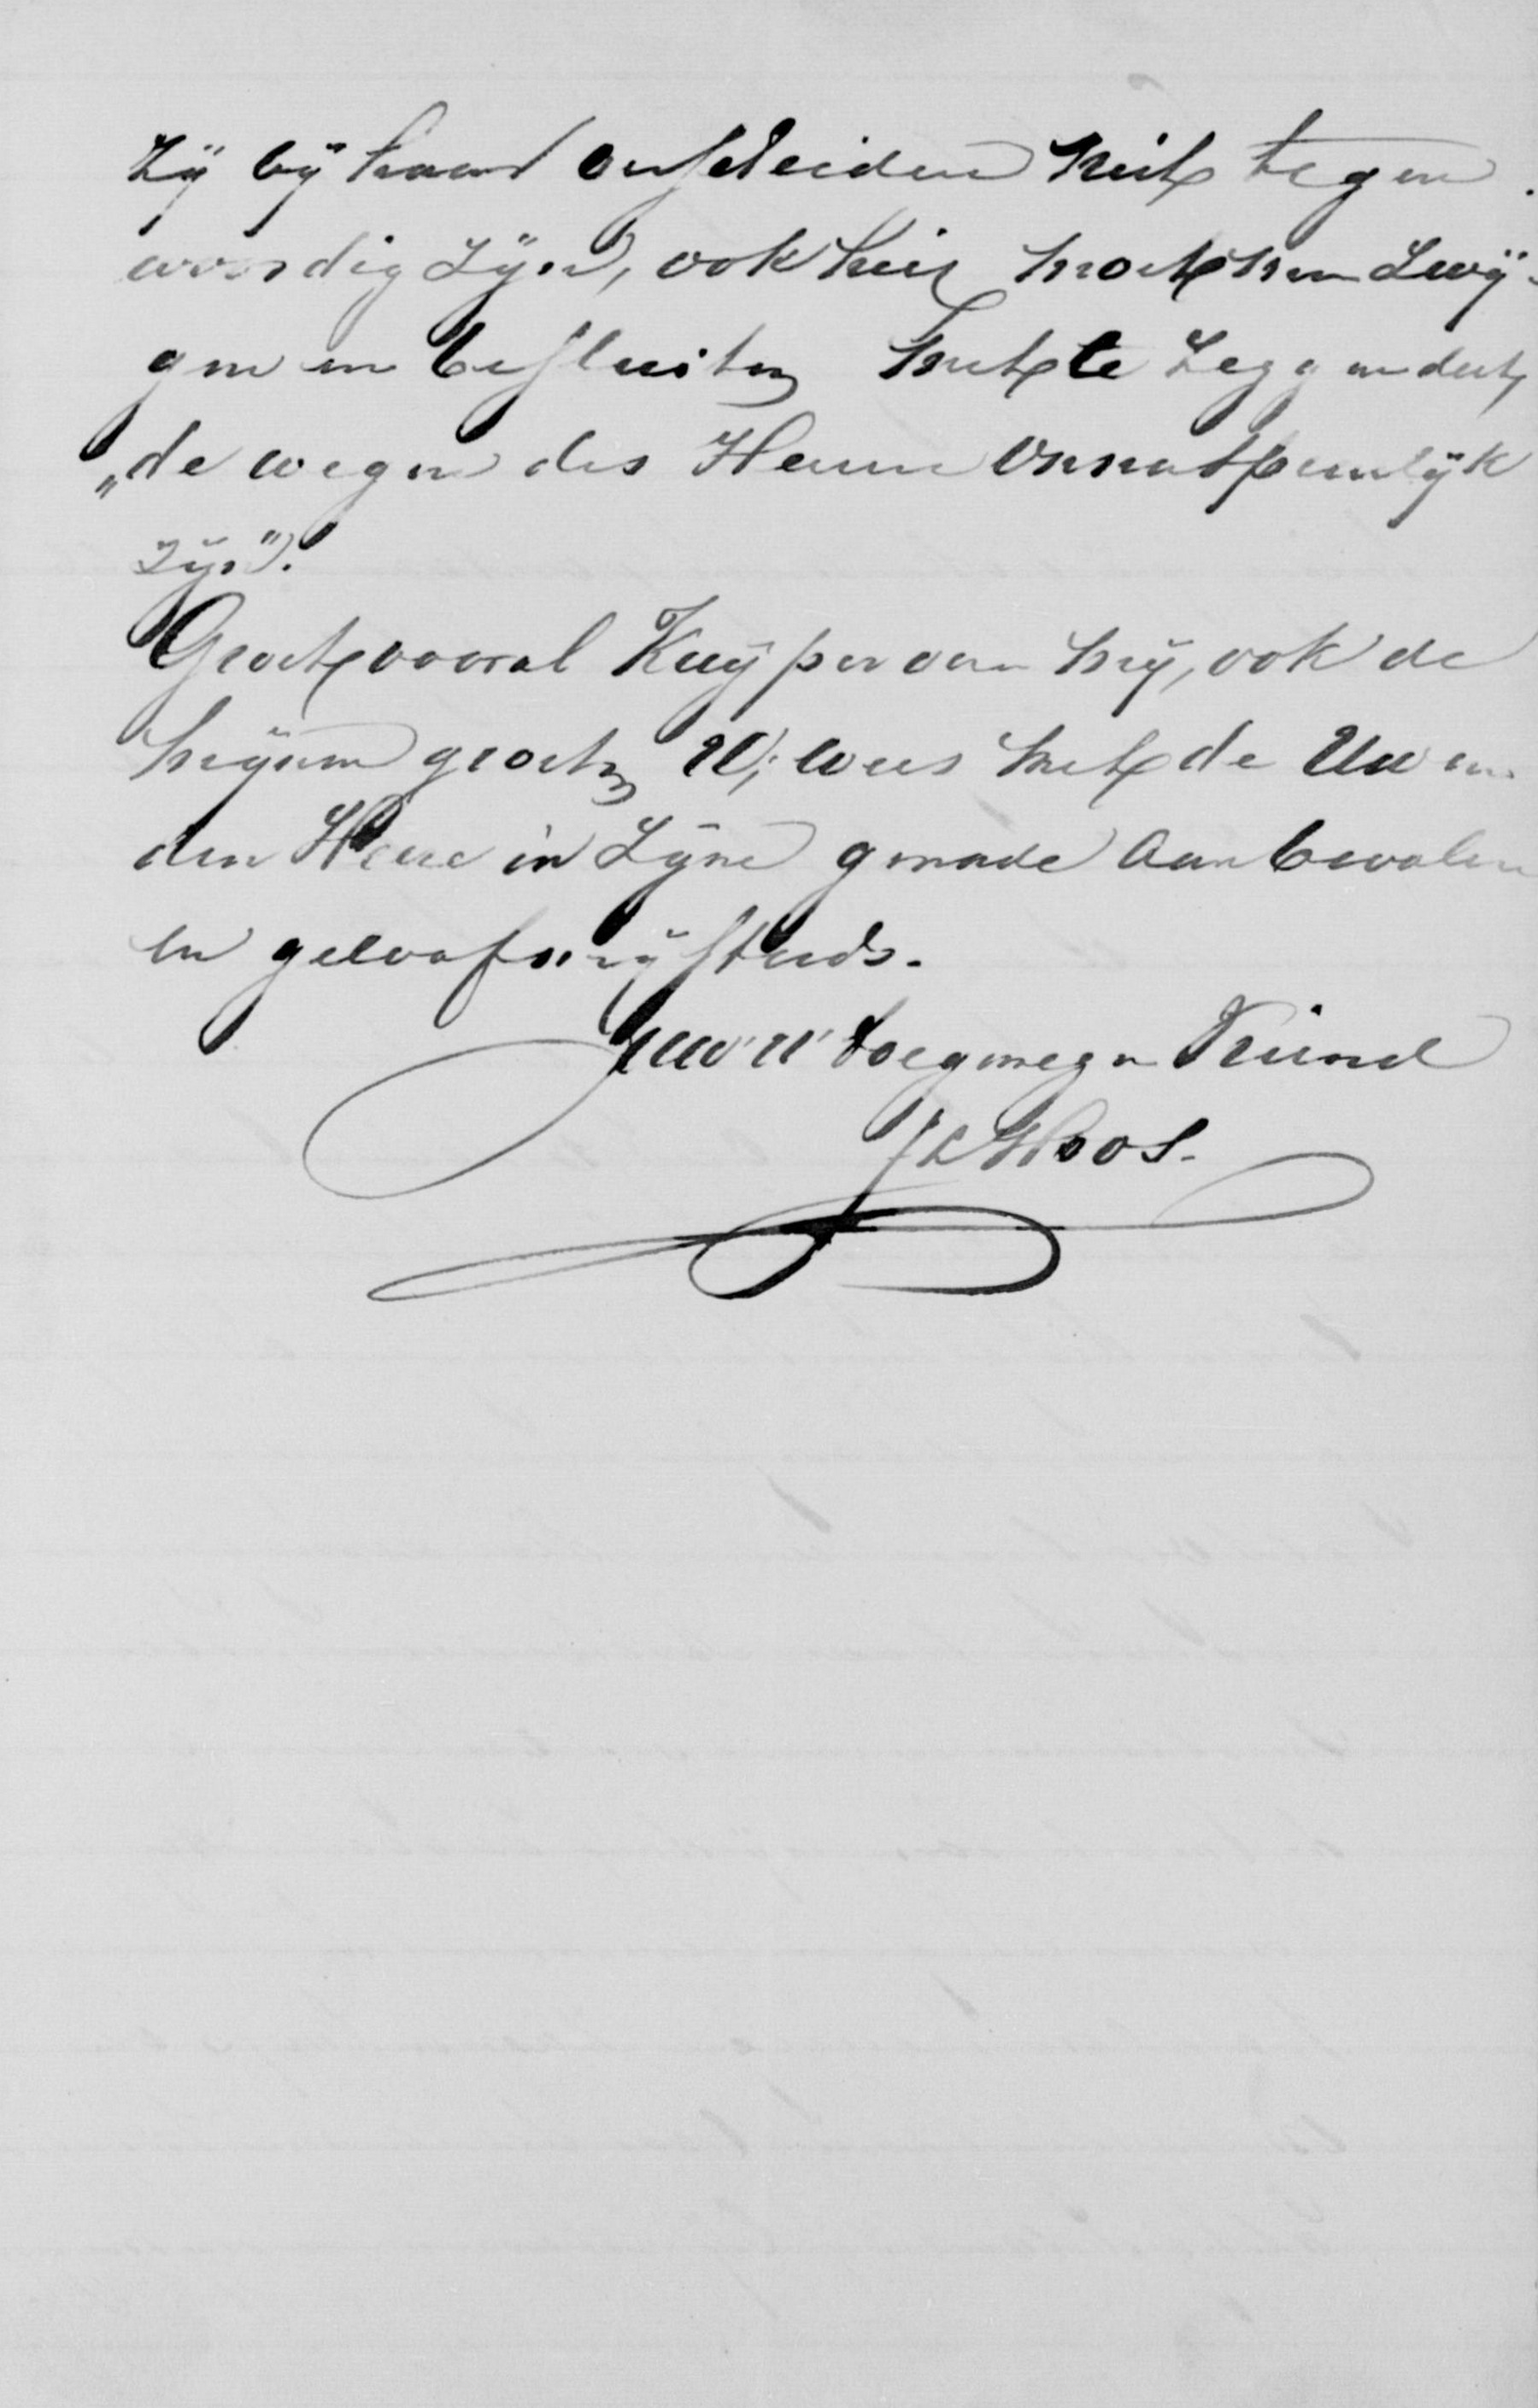 zÿ bÿ haar overleiden niet tegen
woordig zÿn, ook hier moet men zwÿ-
gen en besluiten met te zeggen dat
„de wegen des Heeren onnaspeurlÿk
zÿn”.
Groet vooral Kuÿper van mÿ, ook de
mÿnen groeten U; wees met de Uwen
den Heere in Zÿne genade aanbevolen
en geloof mÿ steeds.
Uw U toegenegen Vriend